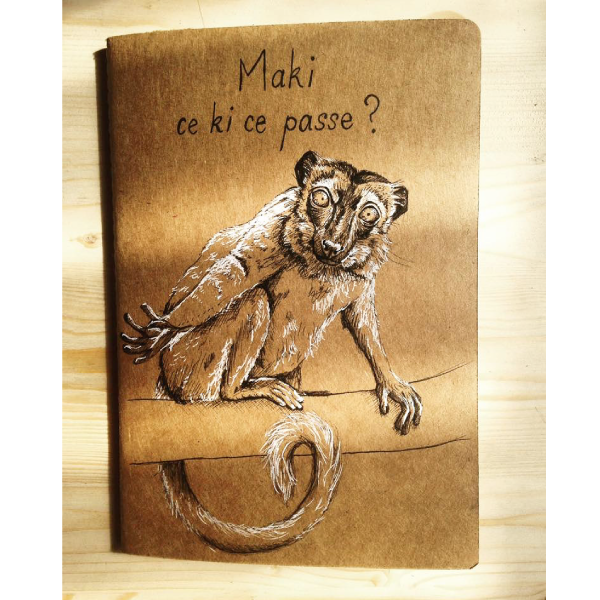 Maki
ce ki ce passe ?